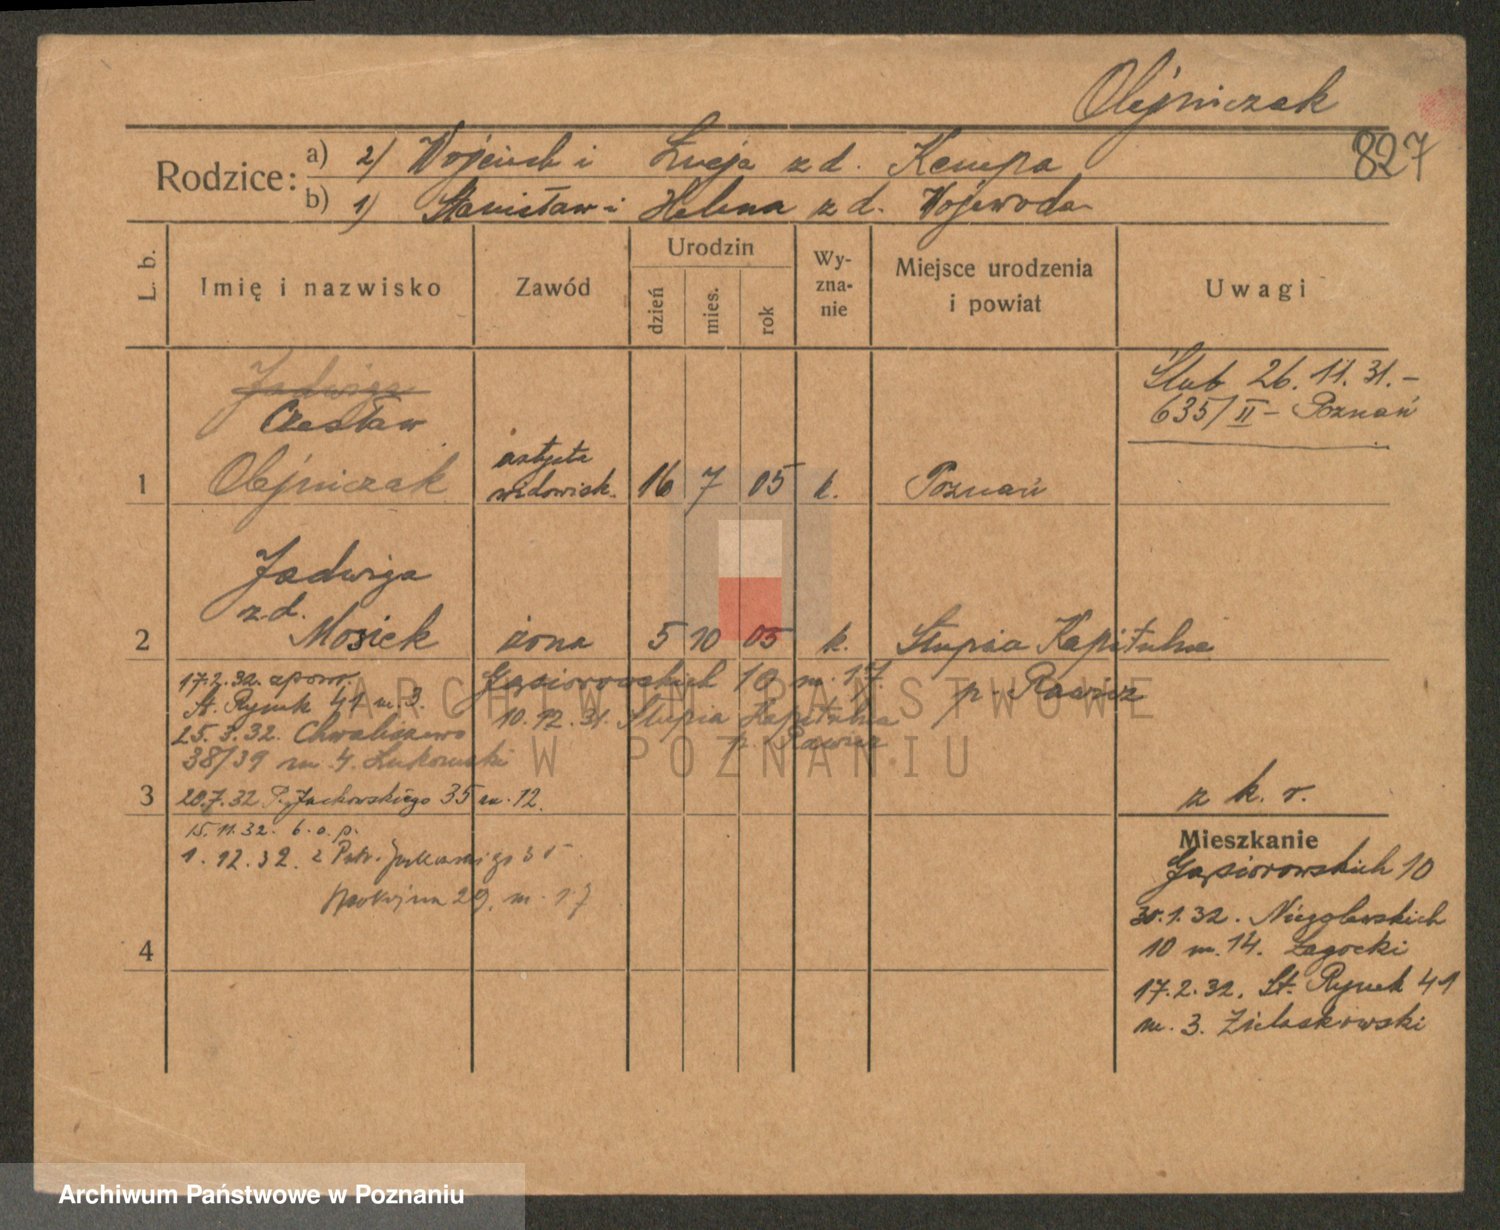 Olejniczak
827
Rodzice: a) 2) Wojciech i Łucja z d. Kempa
b) 1) Stanisław i Helena z d. Wojewoda
L. b.
Imię i nazwisko
Zawód
Urodzin
dzień
mies.
rok
Wy-
zna-
nie
Miejsce urodzenia
i powiat
Uwagi
Ślub 26. 11. 31. –
635/II – Poznań
Jadwiga
Czesław
1 Olejniczak artysta
widowisk. 16 7 05 k. Poznań
Jadwiga
z d.
2 Mosiek żona 5 10 05 k. Stupia Kapitulna
p. Rawicz
17.2.32. zpowr. Gąsiorowskich 10 m. 17.
St. Rynek 41 m. 3. 10.12.31. Stupia Kapitulna
p. Rawicz
25.3.32. Chwaliszewo
38/39 m 4. Lukowski
3 20.7.32 P. Jackowskiego 35 m. 12.
z k. r.
15.11.32. b. o. p.
1. 12. 32. z Ptr.
29. m. 17
4
Mieszkanie
Gąsiorowskich 10
30.1.32. Niegolewskich
10 m. 14. Zagocki
17.2.32. St. Rynek 41
m. 3. Zielaskowski
ARCHIWUM PAŃSTWOWE
W POZNANIU
Archiwum Państwowe w Poznaniu